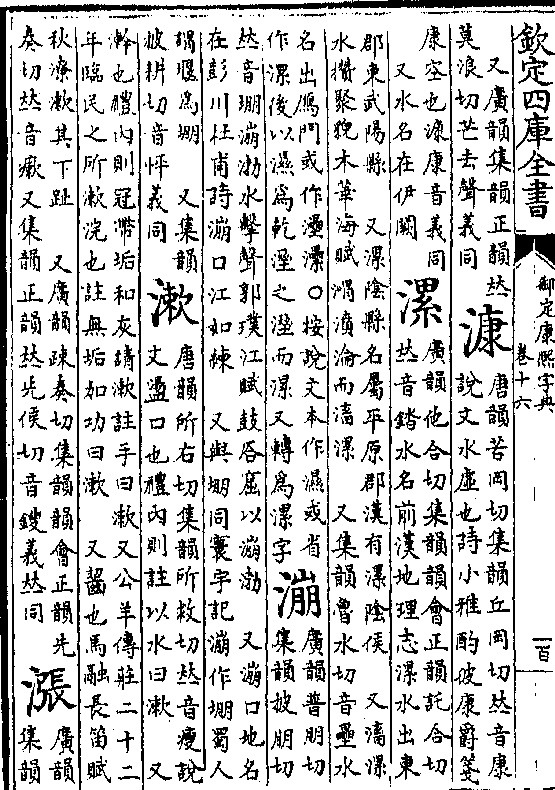 欽定四庫全書
御定康熙字典
卷十六
一百
又廣韻集韻正韻𠀤
莫浪切茫去聲義同
漮
唐韻苦岡切集韻丘岡切𠀤音康
說文水虛也詩小雅酌彼康爵箋
康空也漮康音義同
又水名在伊闕
漯
廣韻他合切集韻韻會正韻託合切
𠀤音錔水名前漢地理志漯水出東
郡東武陽縣 又漯陰縣名屬平原郡漢有漯陰侯 又滀漯
水攢聚貌木華海賦 濆淪而滀漯 又集韻魯水切音壘水
名出鴈門或作灅 ○按說文本作濕或省
作漯後以濕爲乾溼之溼而漯又轉爲漯字
漰
廣韻普朋切
集韻披朋切
𠀤音 漰渤水擊聲郭璞江賦鼓 窟以漰渤 又漰口地名
在彭川杜甫詩漰口江如練 又與堋同寰宇記漰作堋蜀人
謂堰爲堋 又集韻
披耕切音怦義同
漱
唐韻所右切集韻所救切𠀤音瘦說
文盪口也禮內則註以水曰漱 又
澣也禮內則冠帶垢和灰請漱註手曰漱又公羊傳莊二十二
年臨民之所漱浣也註無垢加功曰漱 又齧也馬融長笛賦
秋潦漱其下趾 又廣韻疎奏切集韻韻會正韻先
奏切𠀤音瘶又集韻正韻𠀤先侯切音鎪義𠀤同
漲
廣韻
集韻